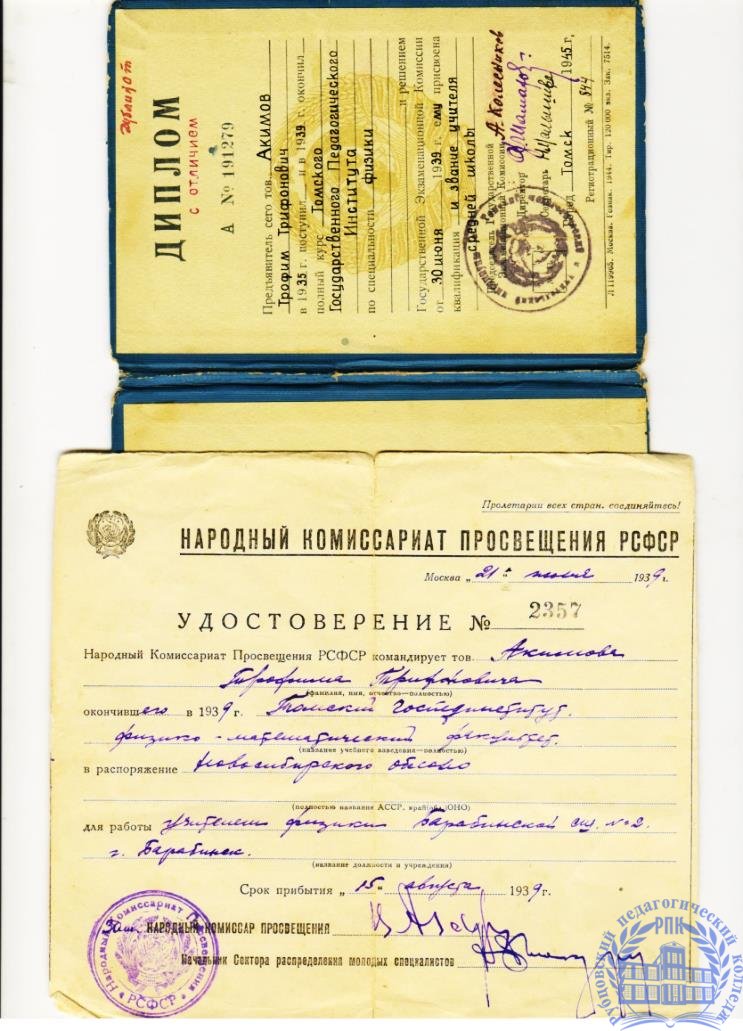 Дубликат
ДИПЛОМ
с отличием
А № 191279
Предъявитель сего тов. Акимов
Трофим Трифонович
в 1935 г. поступил и в 1939 г. окончил
полный курс Томского
Государственного Педагогического
Института
по специальности физики
и решением
Государственной Экзаменационной Комиссии
от 30 июня 1939 г. ему присвоена
квалификация и звание учителя
средней школы
Председатель Государственной
Экзаменационной Комиссии А. Колесников
Директор
Секретарь
Город Томск 1945 г.
Регистрационный № 844
Л119965. Москва. Гознак. 1944. Тир. 120 000 экз. Зак. 7514.
Пролетарии всех стран, соединяйтесь!
НАРОДНЫЙ КОМИССАРИАТ ПРОСВЕЩЕНИЯ РСФСР
Москва „21" июля 1939 г.
УДОСТОВЕРЕНИЕ № 2357
Народный Комиссариат Просвещения РСФСР командирует тов. Акимова
Трофима Трифоновича
(фамилия, имя, отчество—полностью)
окончившего в 1939 г. Томский Госпединститут,
физико-математический факультет.
(название учебного заведения—полностью)
в распоряжение Новосибирского облоно
(полностью название АССР, край(обл)ОНО)
для работы учителем физики Барабинской сш. №2.
г. Барабинск.
(название должности и учреждения)
Срок прибытия „15" августа 1939 г.
Зам. НАРОДНЫЙ КОМИССАР ПРОСВЕЩЕНИЯ
Начальник Сектора распределения молодых специалистов
Народный Комиссариат Просвещения
РСФСР
Рубцовский педагогический колледж
РПК